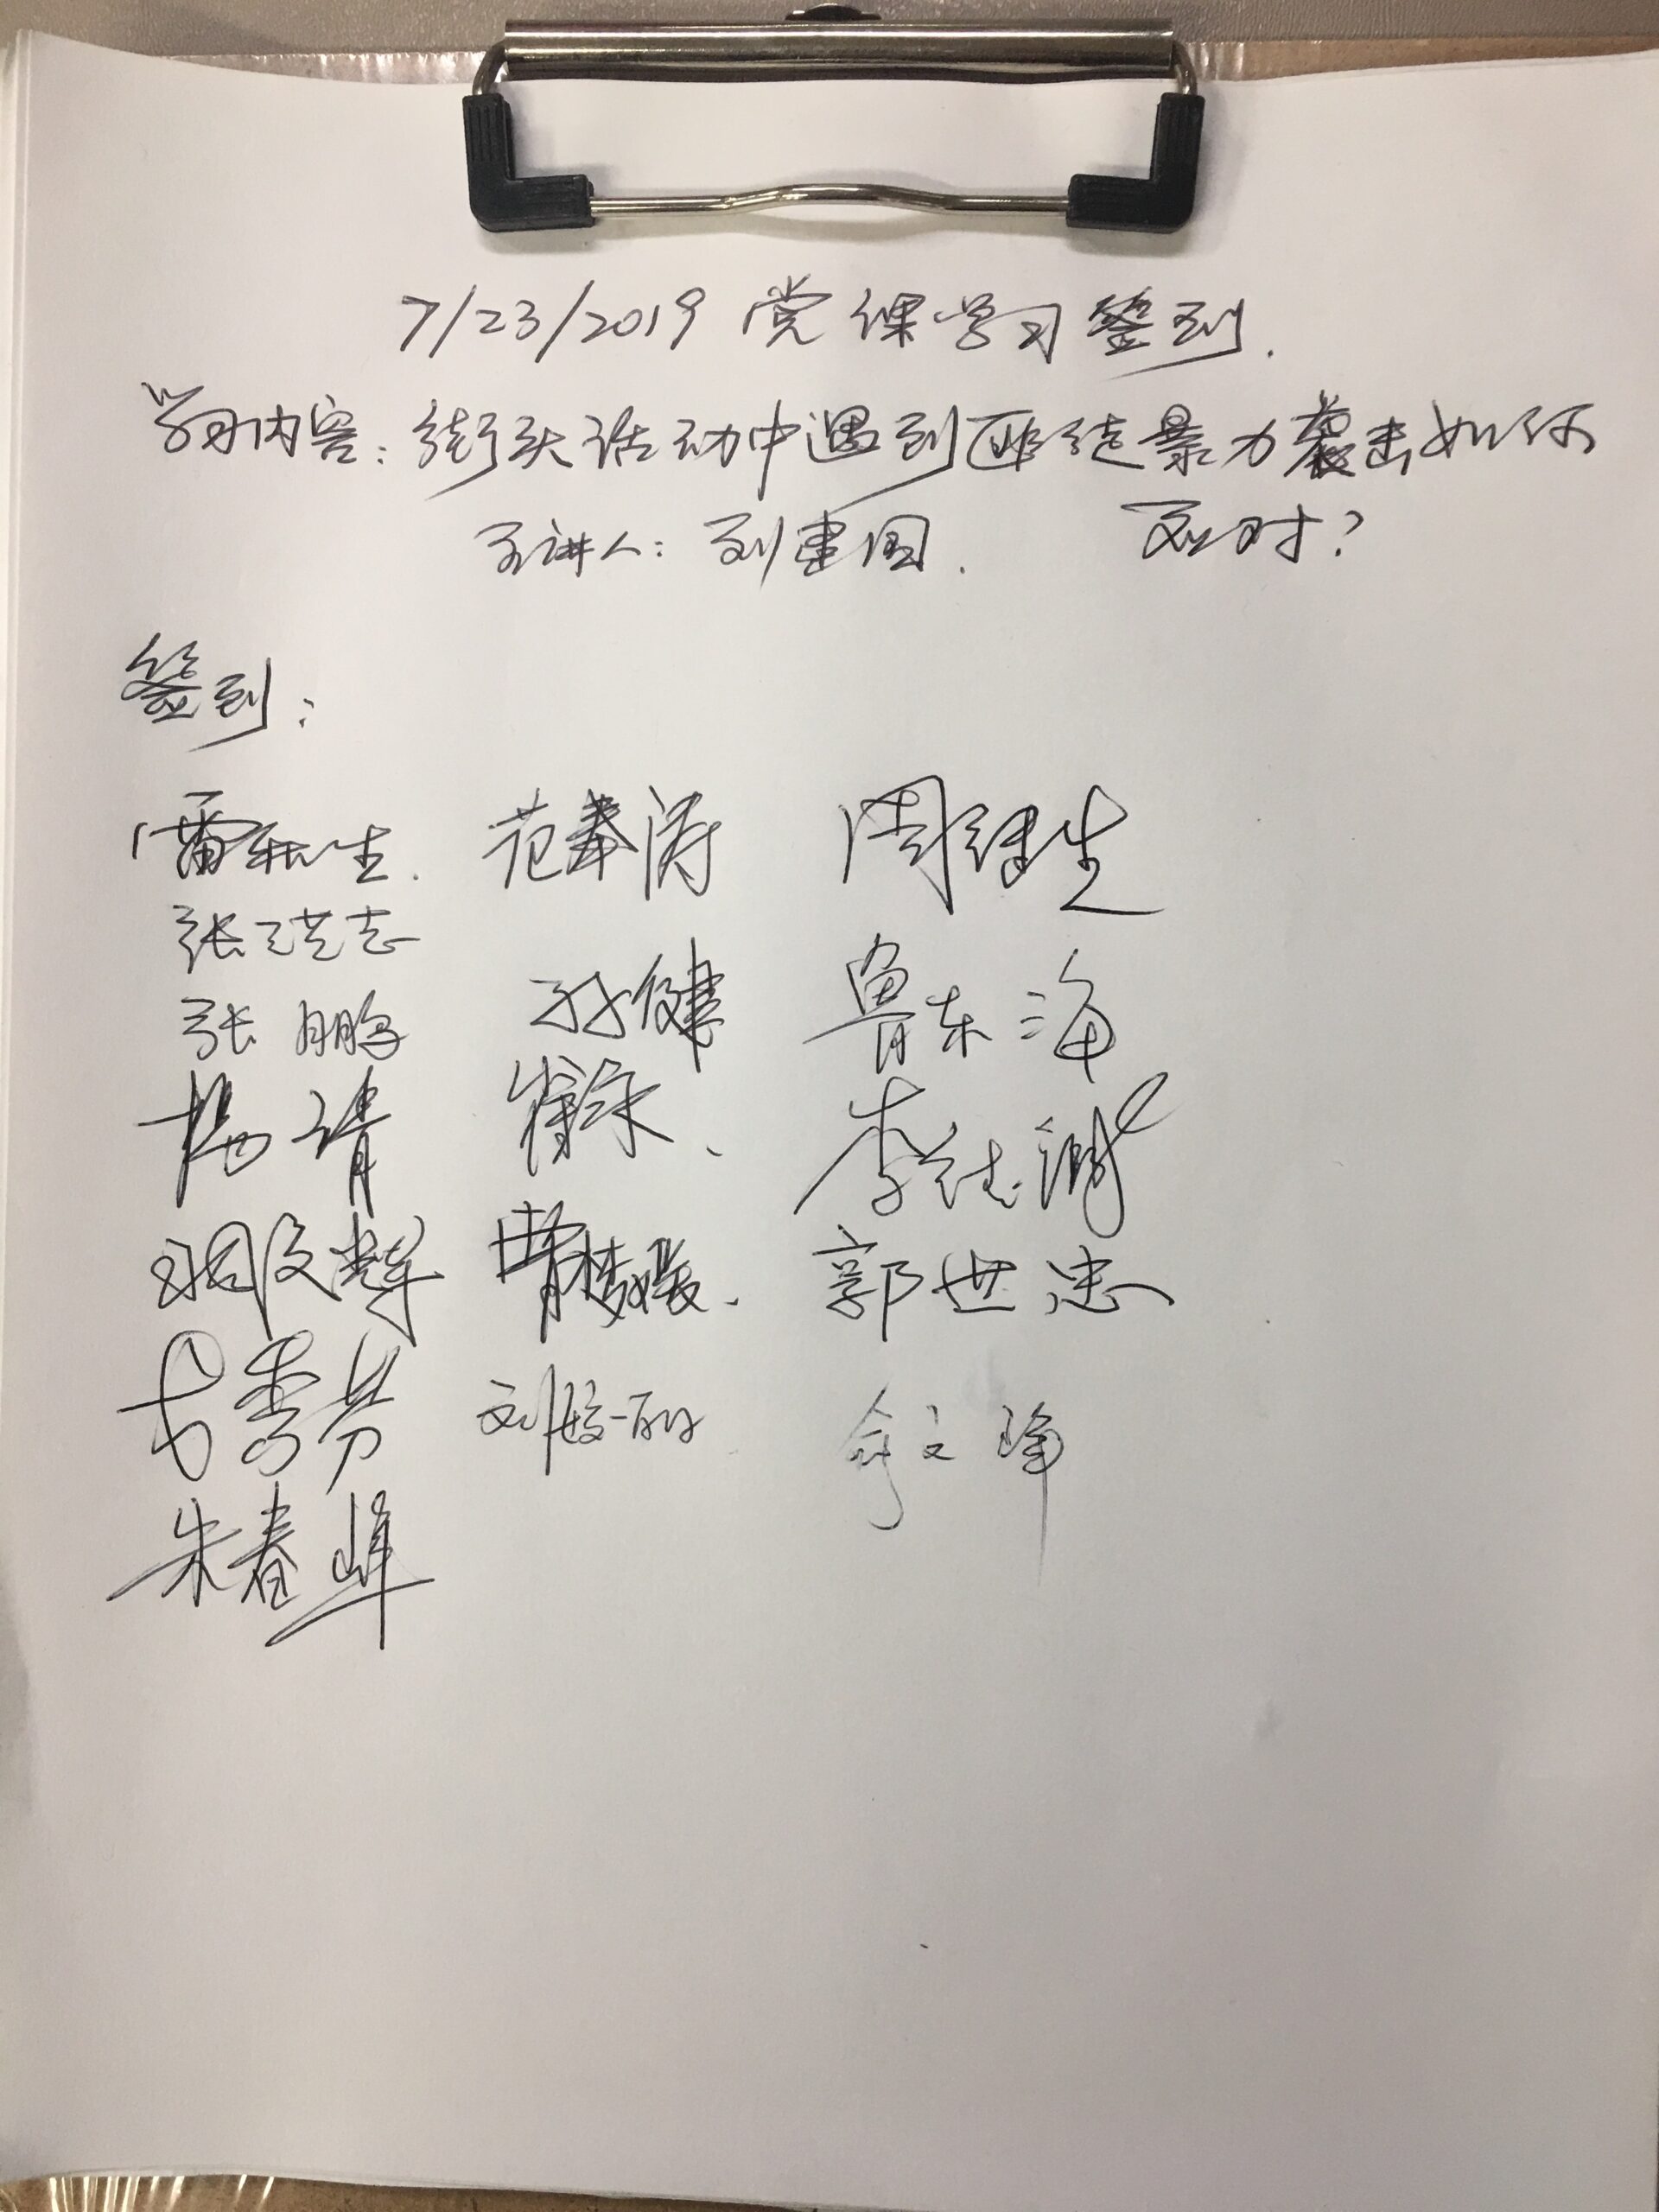 7/23/2019 党课学习签到.
学习内容:街头活动中遇到匪徒暴力袭击如何
应对?
主讲人: 刘建国.
签到:
范奉涛 周继生
张洪志
张鹏 孙健 鲁东海
杨靖 崔徐、 李纪
胡文辉 曹梦媛. 郭世忠
秀芬 刘 丽 俞文峰
朱春峰